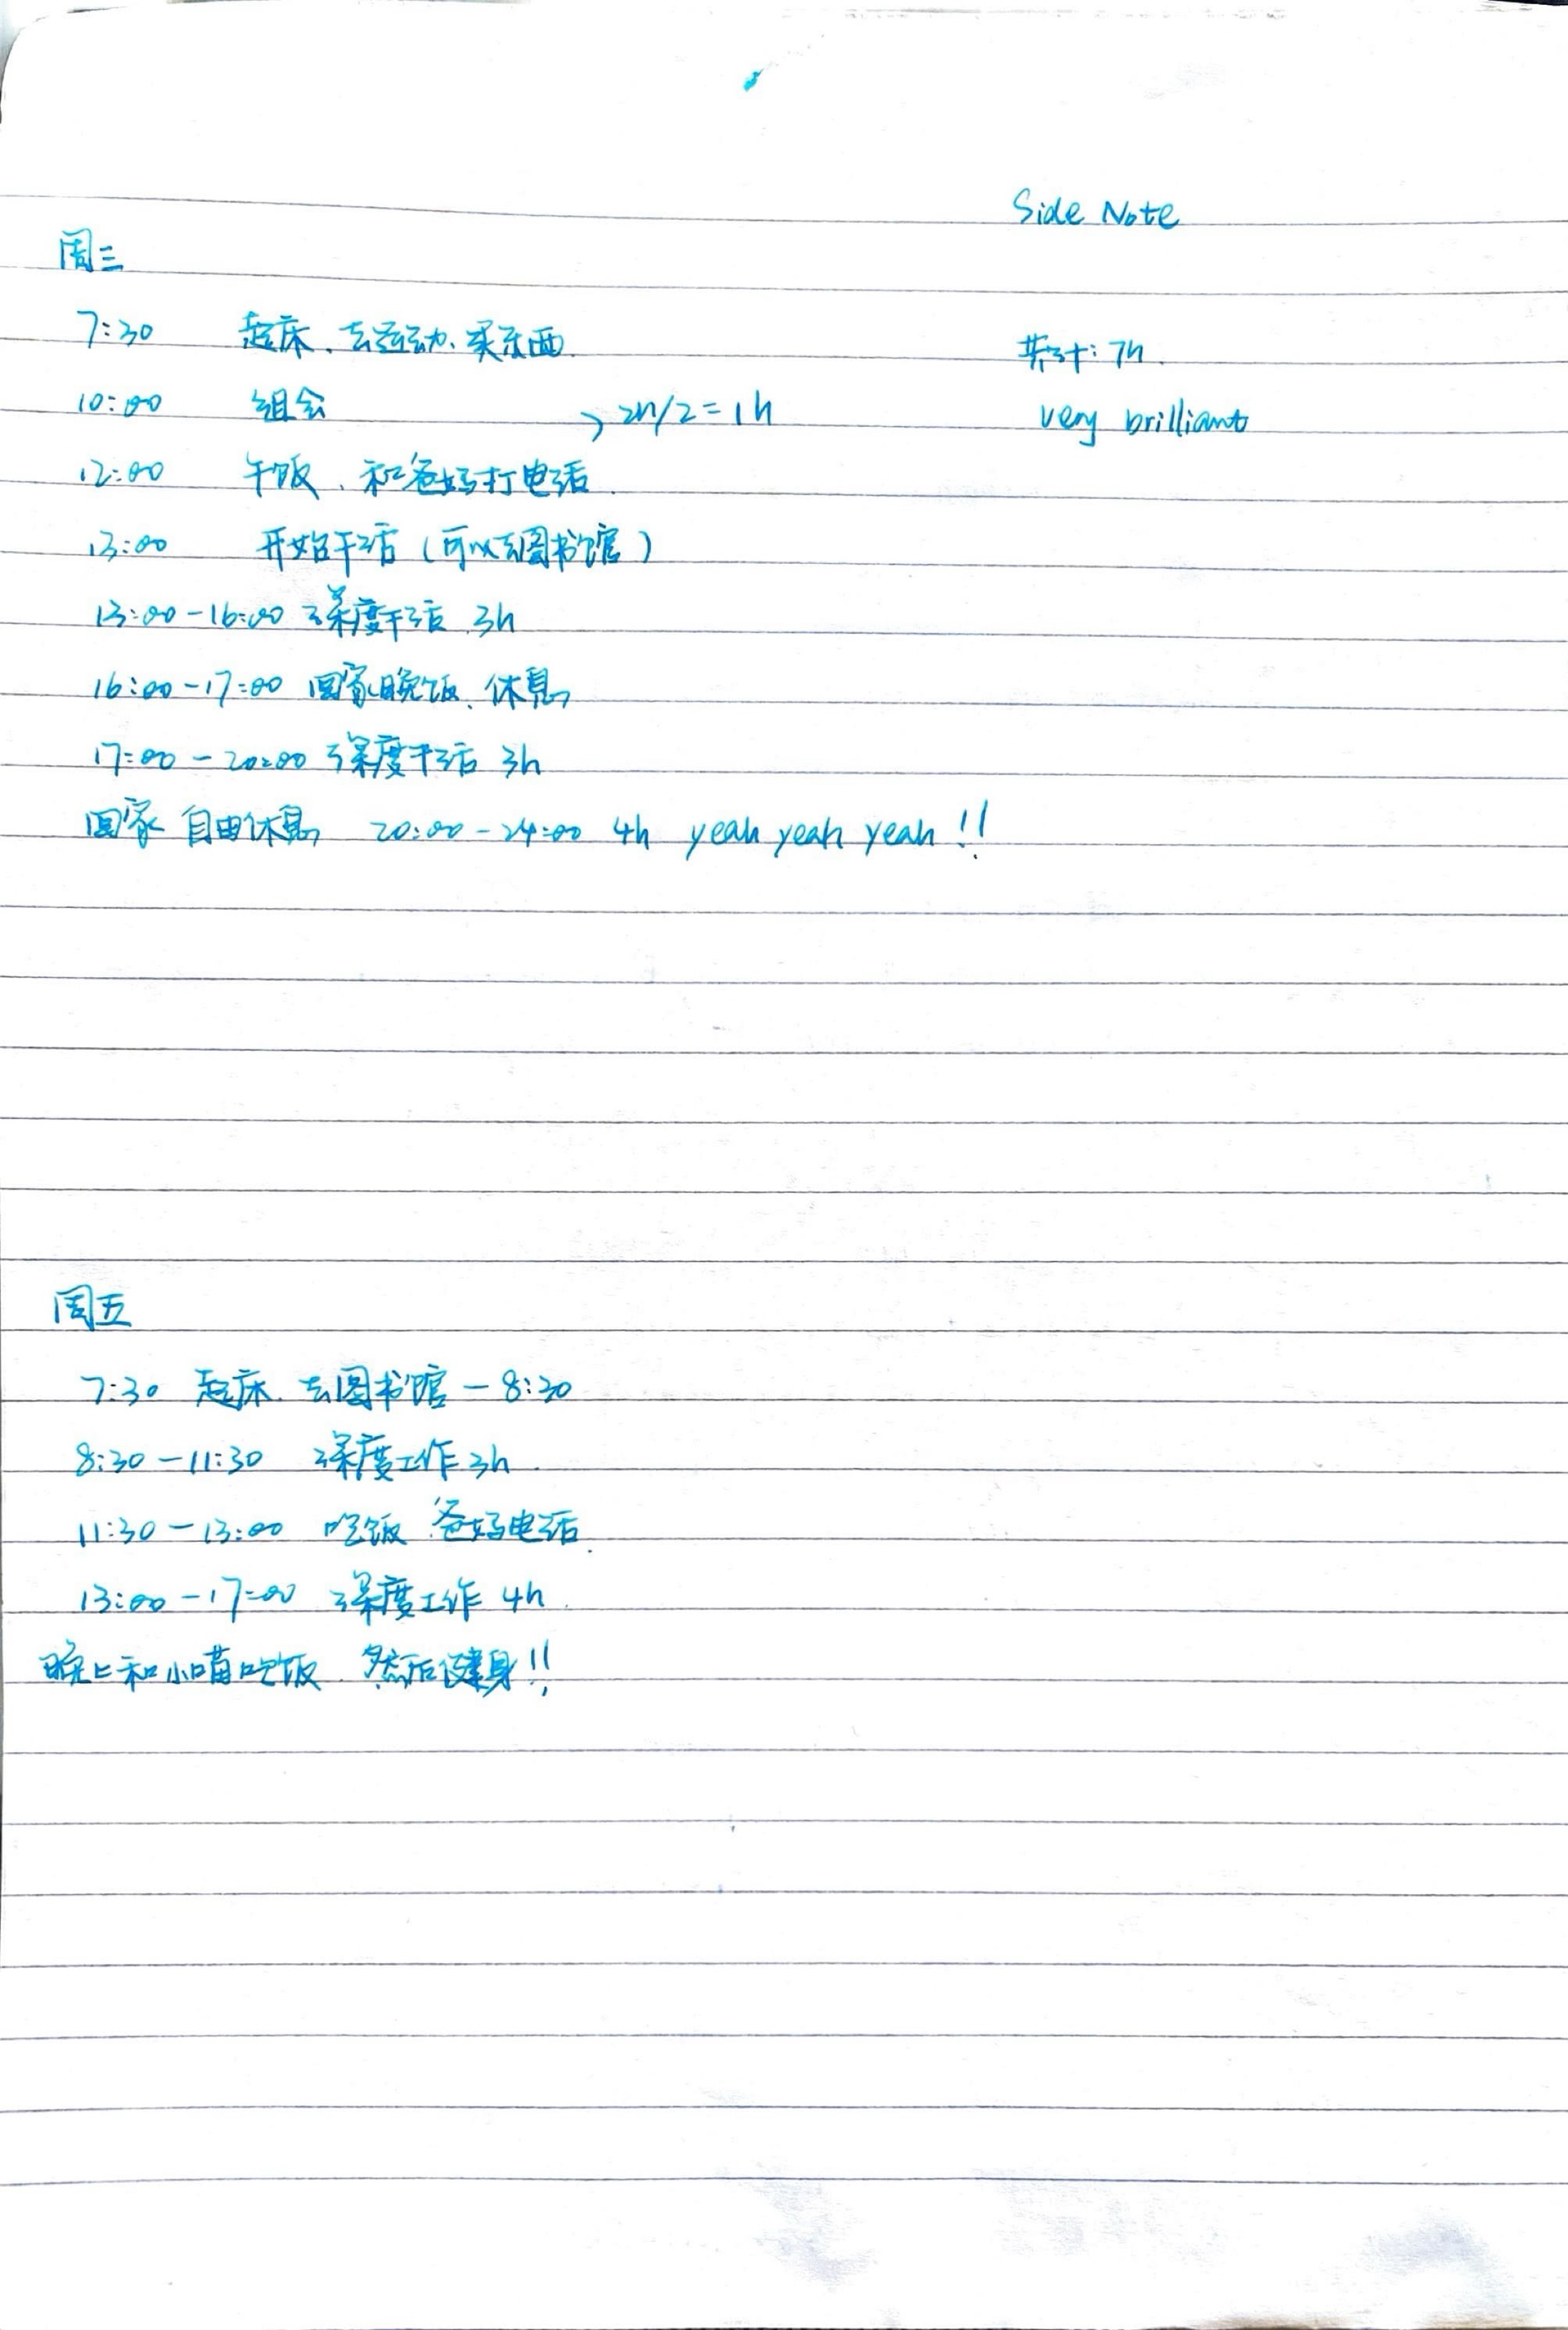 Side Note
周三
7:30 起床、去运动、买东西
共计: 7h.
10:00 组会 > 2h/2=1h
very brilliant
12:00 午饭、和爸妈打电话
13:00 开始干活(可以去图书馆)
13:00-16:00 深度干活 3h
16:00-17:00 回家晚饭、休息
17:00-20:00 深度干活 3h
回家 自由休息 20:00-24:00 4h yeah yeah yeah!!
周五
7:30 起床、去图书馆-8:30
8:30-11:30 深度工作3h
11:30-13:00 吃饭 爸妈电话
13:00-17:00 深度工作 4h
晚上和小喵吃饭、然后健身!!